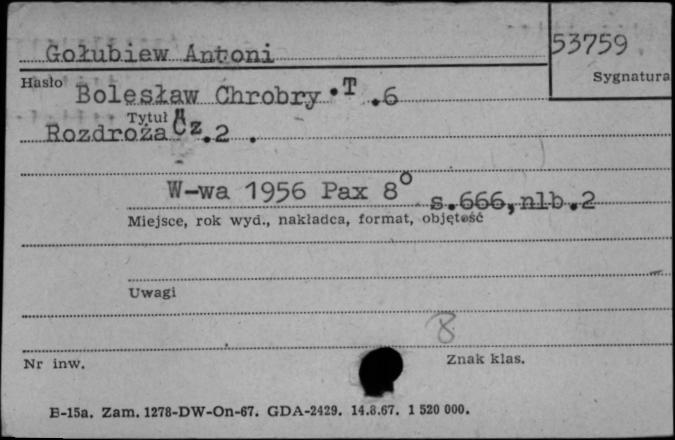 Gołubiew Antoni
53759
Hasło
Sygnatura
Bolesław Chrobry.T.6
Tytuł
Rozdroża Cz.2.
W-wa 1956 Pax 8° s.666,nlb.2
Miejsce, rok wyd., nakładca, format, objętość
Uwagi
8
Nr inw.
Znak klas.
B-15a. Zam. 1278-DW-On-67. GDA-2429. 14.8.67. 1 520 000.